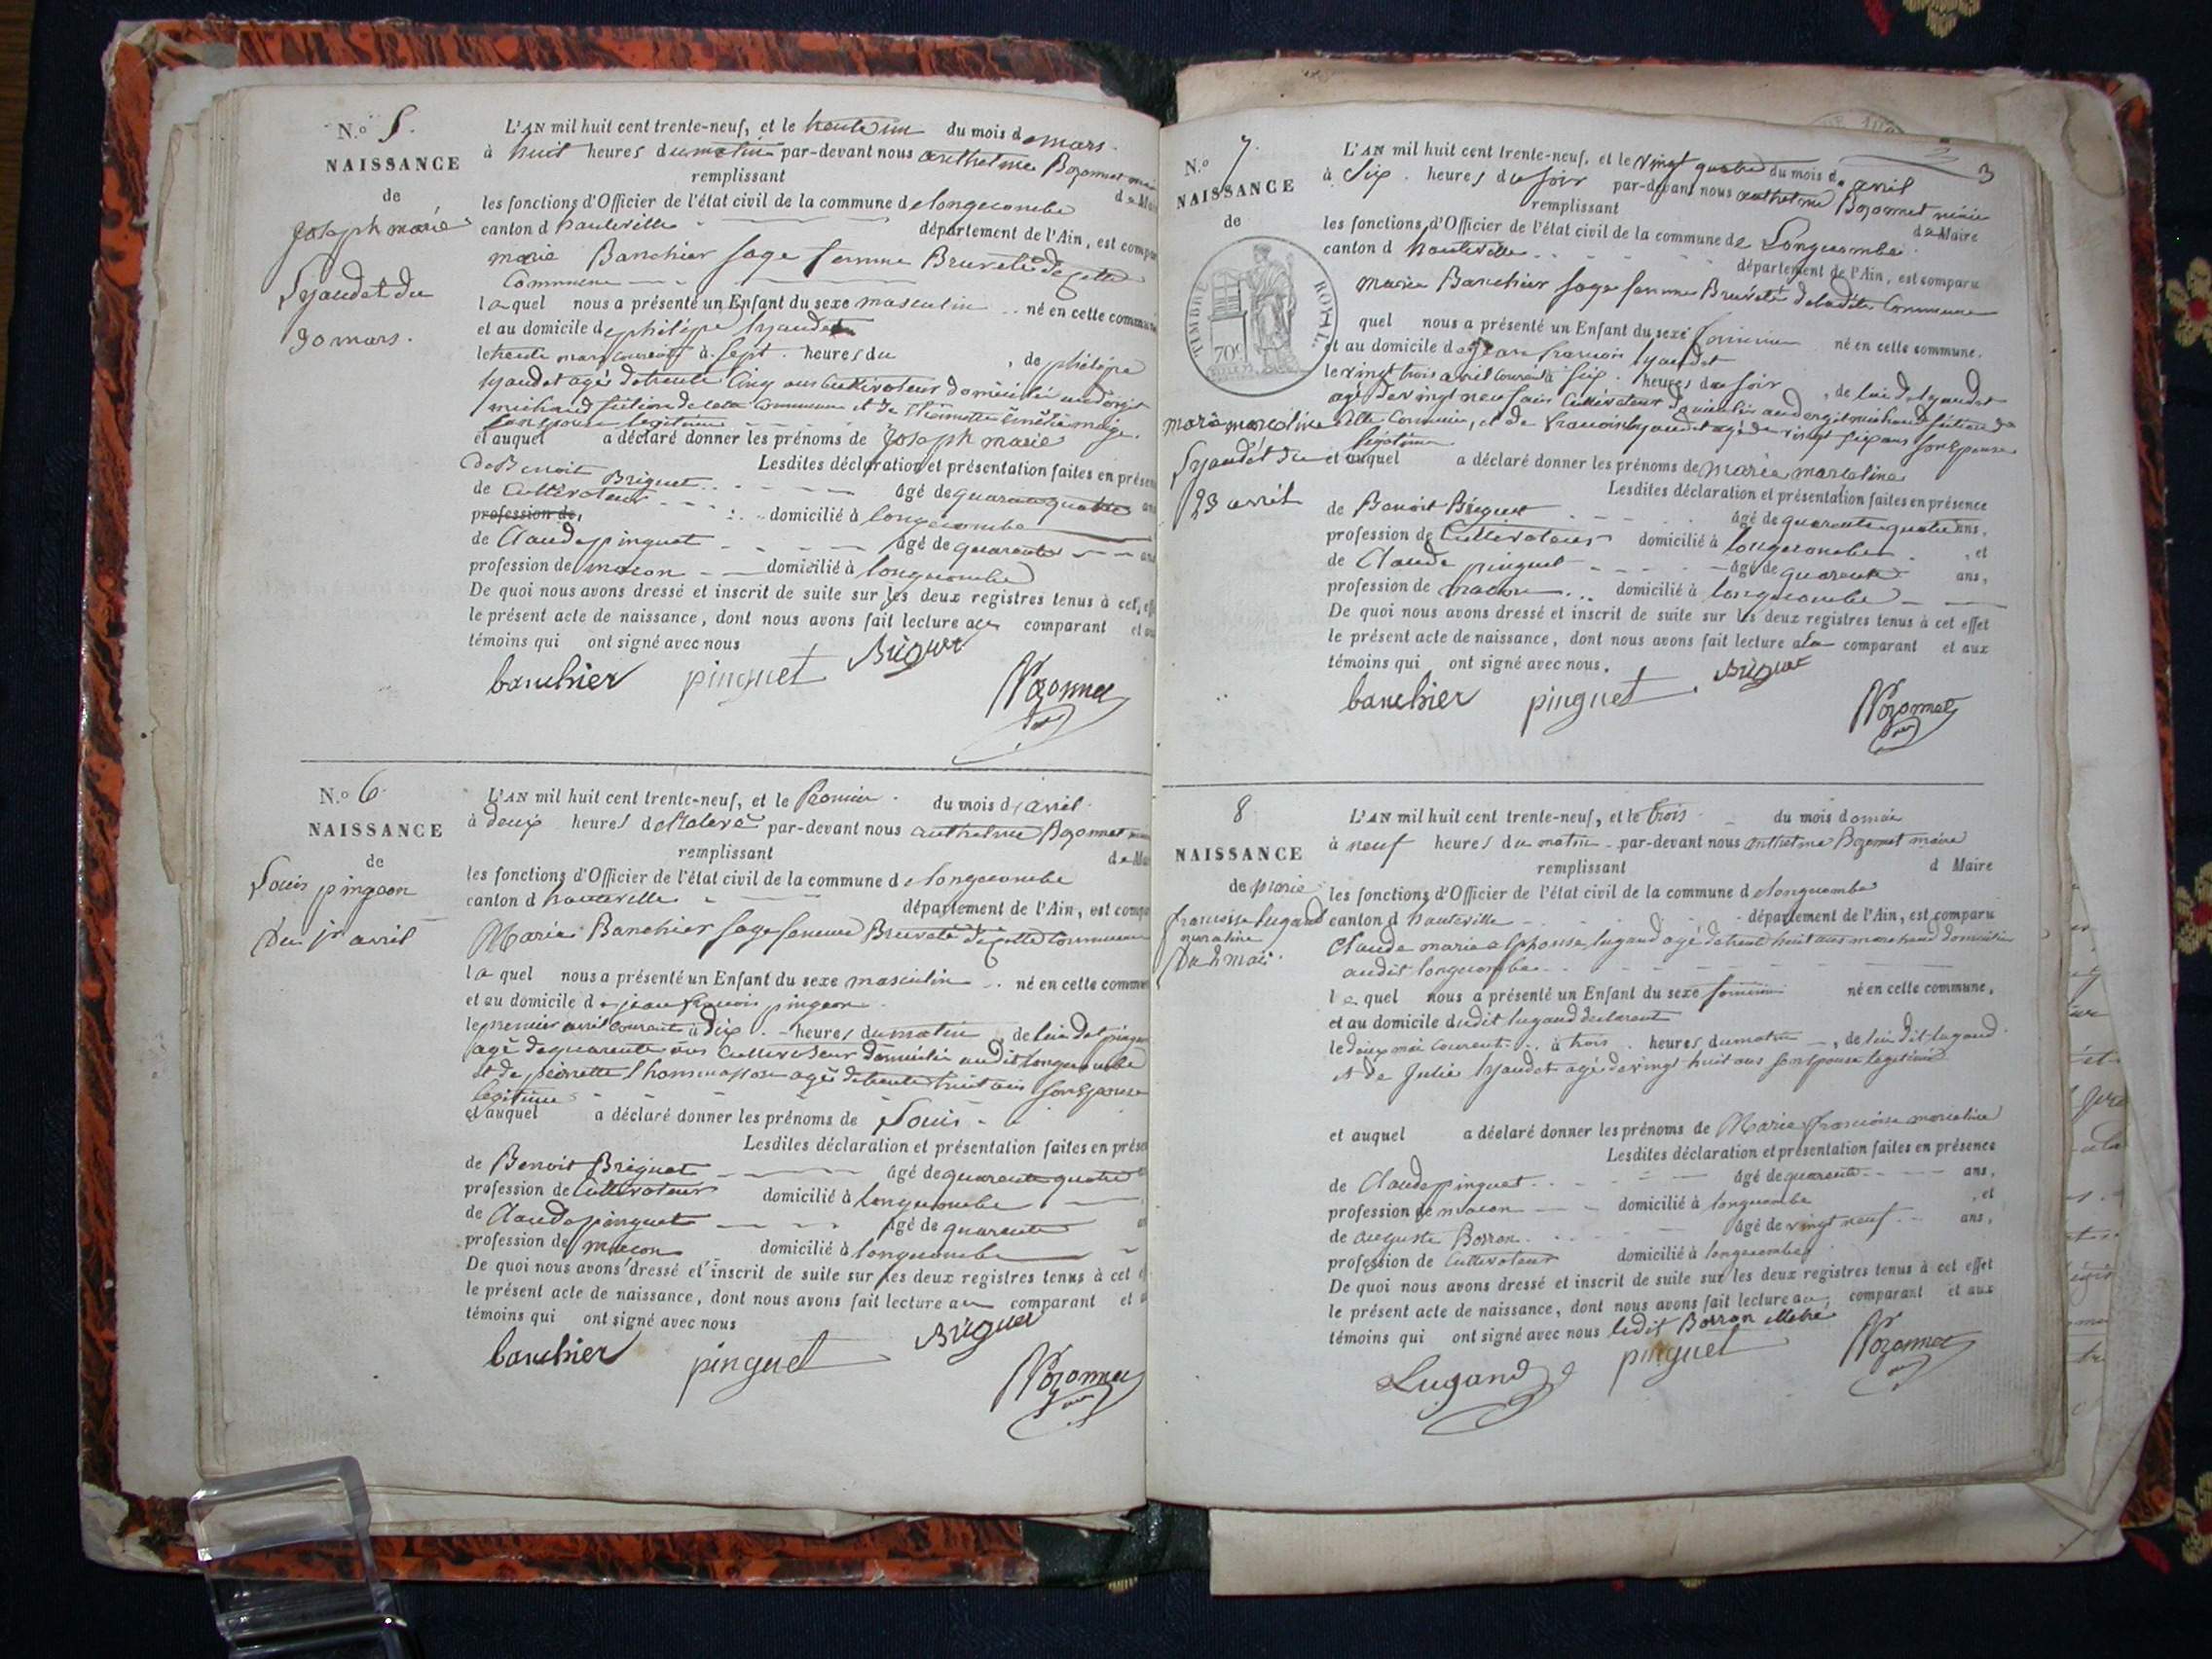 N.o 5.
NAISSANCE
de
Joseph marie
Lyaudet du
30 mars.
L'AN mil huit cent trente-neuf, et le trente un du mois de mars.
à huit heures du matin par-devant nous anthelme Bozonnet maire
remplissant
les fonctions d'Officier de l'état civil de la commune de longecombe
canton d hauteville département de l'Ain, est comparu
marie Banchier sage femme Brevetée de cette
Commune
laquel nous a présenté un Enfant du sexe masculin né en cette commune
et au domicile de philippe lyaudet
le trente mars courant à sept heures du , de philippe
lyaudet agé de trente Cinq ans Cultivateur domicilié
michaud section de la Commune et de
son épouse légitime
et auquel a déclaré donner les prénoms de Joseph marie
Lesdites déclaration et présentation faites en présence
de Benoit Briguet âgé de quarante quatre ans
de Cultivateur
profession de, domicilié à longecombe
de Claude pinguet âgé de quarante ans
profession de maçon domicilié à longecombe
De quoi nous avons dressé et inscrit de suite sur les deux registres tenus à cet effet
le présent acte de naissance, dont nous avons fait lecture aux comparant et aux
témoins qui ont signé avec nous
banchier pinguet Briguet
Bozonnet
N.o 6.
NAISSANCE
de
Louis pingeon
Du 1er avril
L'AN mil huit cent trente-neuf, et le Premier du mois d'avril
à deux heures de Relevé par-devant nous anthelme Bozonnet maire
remplissant de Maire
les fonctions d'Officier de l'état civil de la commune d longecombe
canton d hauteville département de l'Ain, est comparu
Marie Banchier sage femme Brevetée de cette Commune
laquel nous a présenté un Enfant du sexe masculin né en cette commune
et au domicile de jean françois pingeon
le premier avril courant à dix heures du matin, de lui dit pingeon
agé de quarante ans Cultivateur domicilié audit longecombe
et de pierrette agé de trente huit ans son Epouse
légitime
et auquel a déclaré donner les prénoms de Louis
Lesdites déclaration et présentation faites en présence
de Benoit Briguet âgé de quarante quatre
profession de Cultivateur domicilié à longecombe
de Claude pinguet âgé de quarante
profession de maçon domicilié à longecombe
De quoi nous avons dressé et inscrit de suite sur les deux registres tenus à cet
le présent acte de naissance, dont nous avons fait lecture au comparant et
témoins qui ont signé avec nous
banchier pinguet Briguet
Bozonnet
3
N.o 7.
NAISSANCE
de
TIMBRE ROYAL
70c
marie marceline
Lyaudet du
23 avril
L'AN mil huit cent trente-neuf, et le vingt quatre du mois d avril
à Six heures du soir par-devant nous anthelme Bozonnet maire
remplissant de Maire
les fonctions d'Officier de l'état civil de la commune de Longecombe
canton d hauteville département de l'Ain, est comparu
marie Banchier sage femme Brévetée de ladite Commune
quel nous a présenté un Enfant du sexe féminin né en cette commune.
et au domicile de jean françois lyaudet
le vingt trois avril courant à six heures du soir, de lui dit lyaudet
agé de vingt neuf ans Cultivateur
cette Commune, et de agé de vingt six ans son Epouse
légitime
et auquel a déclaré donner les prénoms de marie marceline
Lesdites déclaration et présentation faites en présence
de Benoit Briguet âgé de quarante quatre ans,
profession de Cultivateur domicilié à longecombe, et
de Claude pinguet âgé de quarante ans,
profession de maçon domicilié à longecombe
De quoi nous avons dressé et inscrit de suite sur les deux registres tenus à cet effet
le présent acte de naissance, dont nous avons fait lecture a la comparant et aux
témoins qui ont signé avec nous.
banchier pinguet Briguet
Bozonnet
8
NAISSANCE
de marie
françoise lugand
marceline
Du 2 mai.
L'AN mil huit cent trente-neuf, et le trois du mois de mai
à neuf heures du matin par-devant nous anthelme Bozonnet maire
remplissant d Maire
les fonctions d'Officier de l'état civil de la commune d longecombe
canton d hauteville département de l'Ain, est comparu
Claude marie alphonse lugand agé de trente huit ans marchand domicilié
audit longecombe
lequel nous a présenté un Enfant du sexe féminin né en cette commune,
et au domicile dudit lugand déclarant
le deux mai courant à trois heures du matin, de lui dit lugand
et de Julie lyaudet agé de vingt huit ans son Epouse légitime
et auquel a déclaré donner les prénoms de Marie françoise marceline
Lesdites déclaration et présentation faites en présence
de Claude pinguet âgé de quarante ans,
profession de maçon domicilié à longecombe, et
de auguste Borron âgé de vingt neuf ans,
profession de Cultivateur domicilié à longecombe
De quoi nous avons dressé et inscrit de suite sur les deux registres tenus à cet effet
le présent acte de naissance, dont nous avons fait lecture au comparant et aux
témoins qui ont signé avec nous ledit Borron illétré
Lugand pinguet Bozonnet